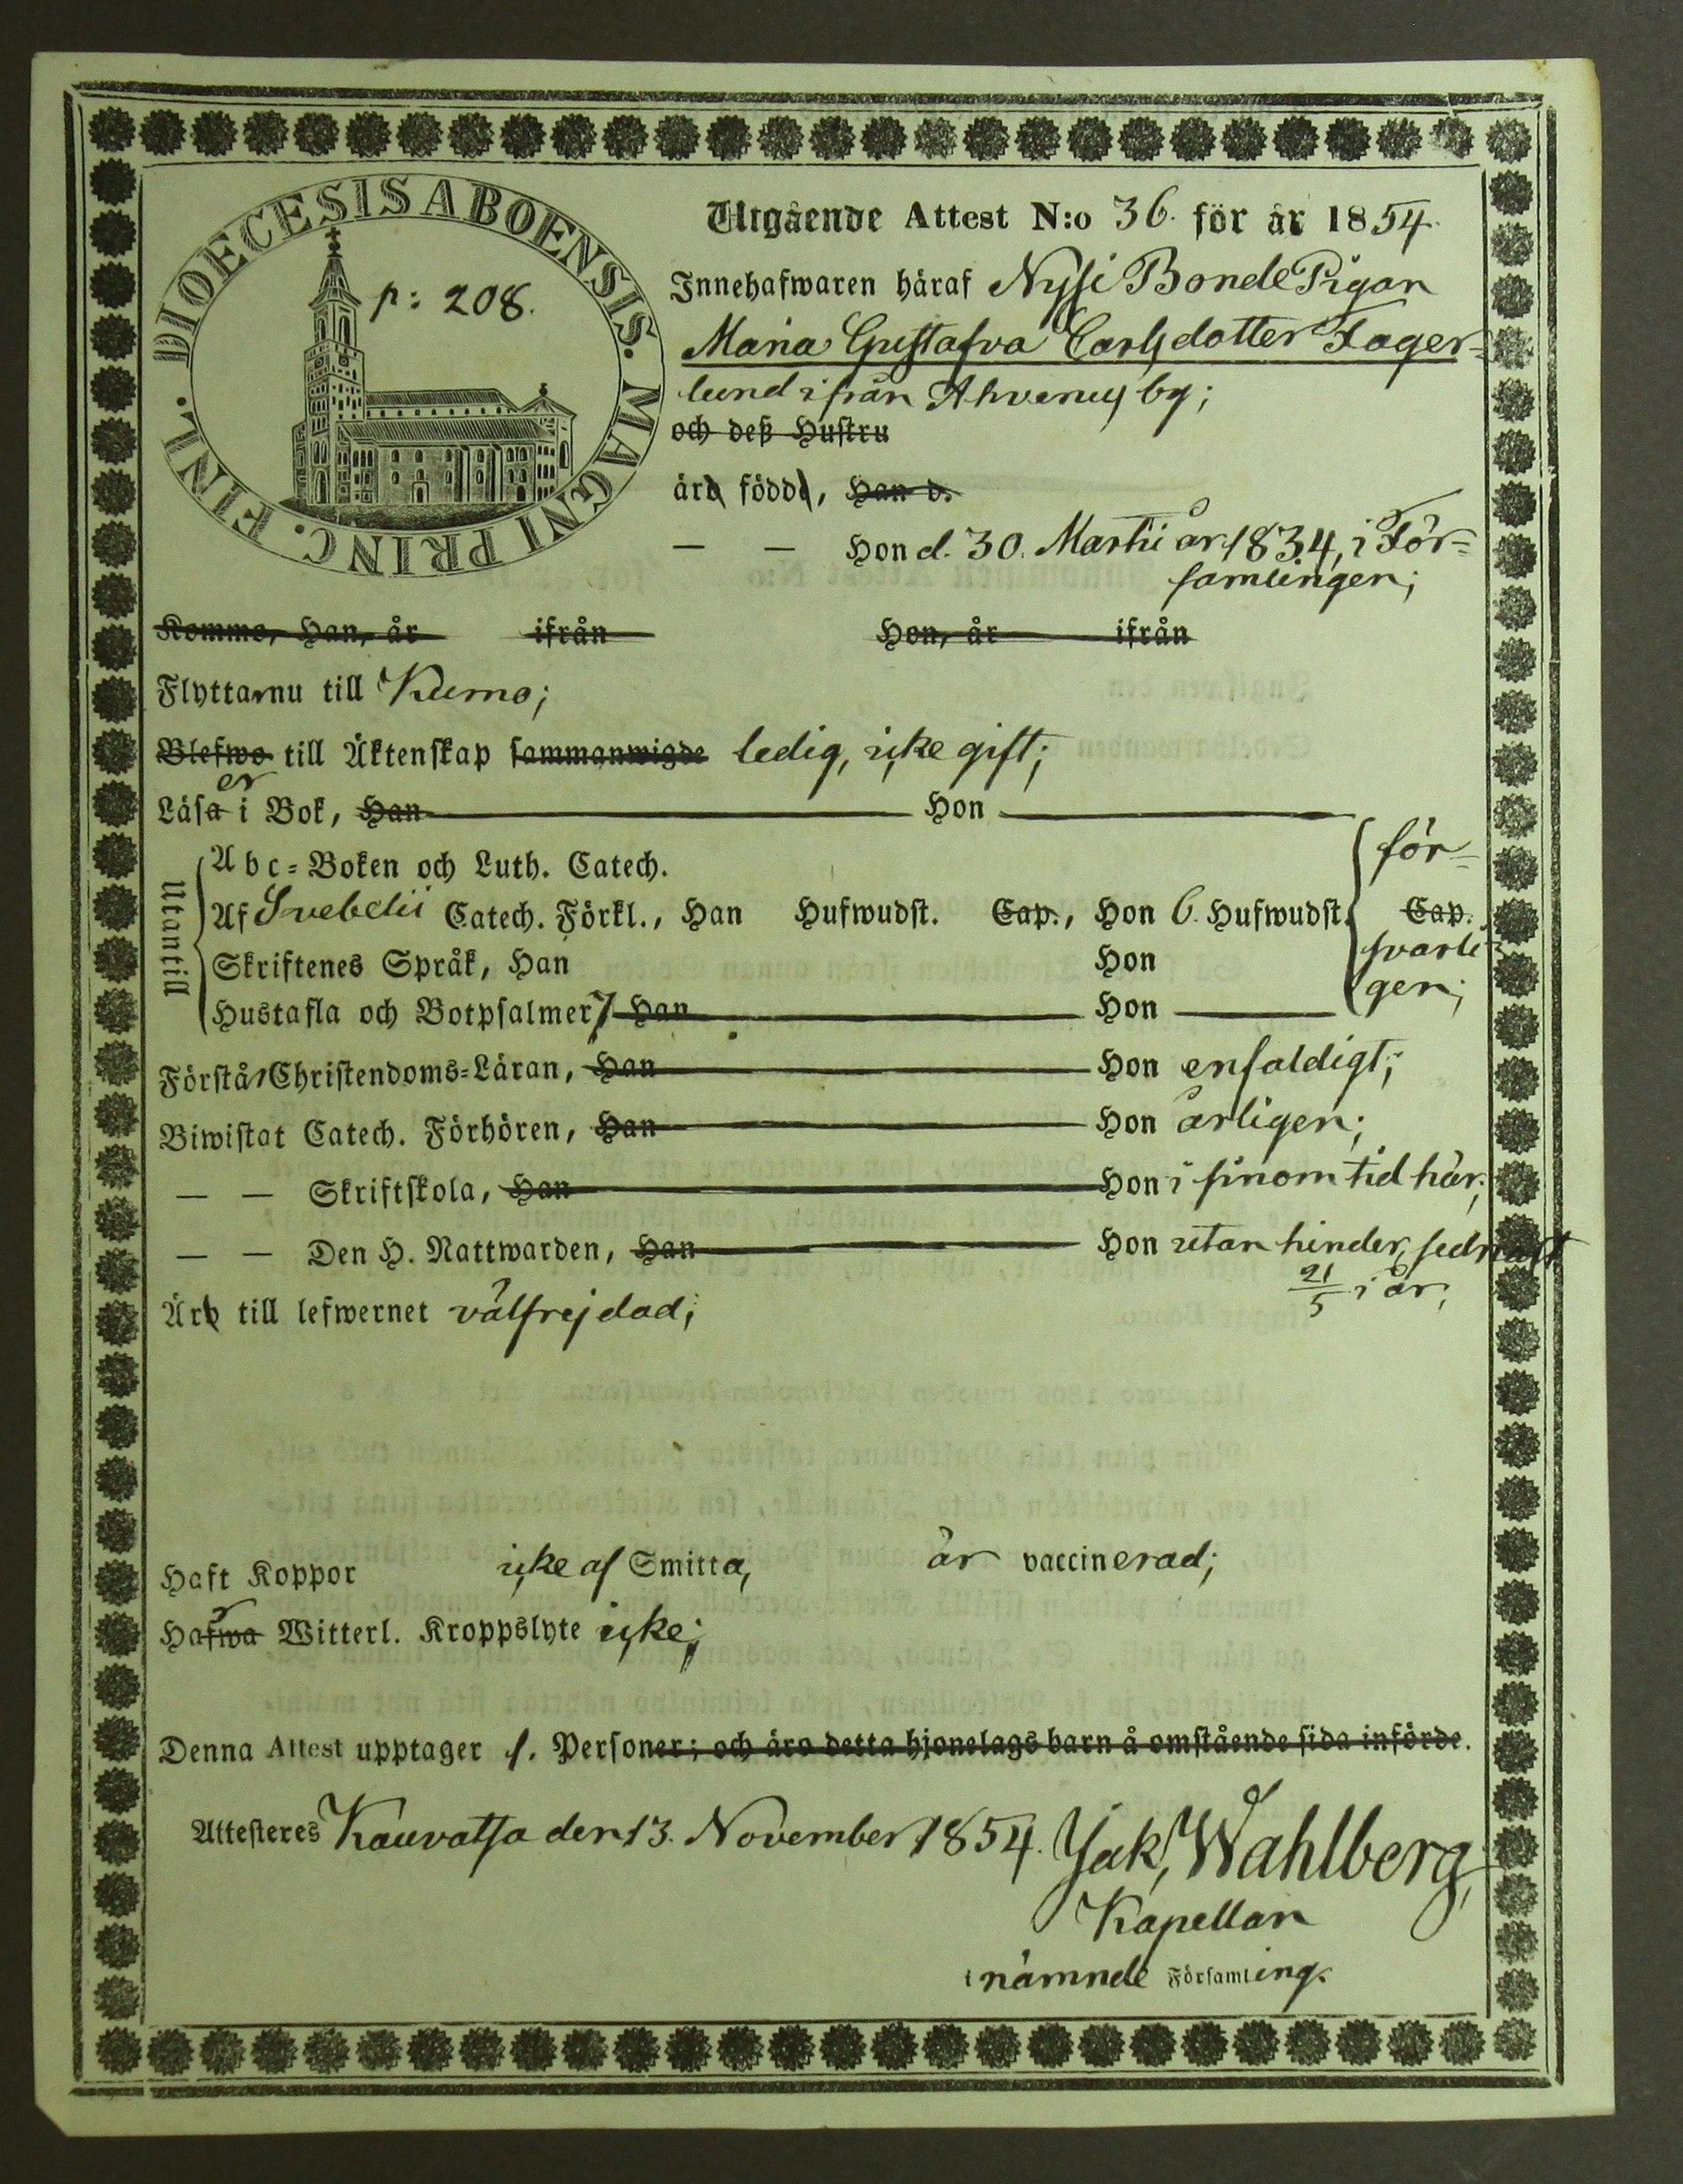 DIOECESIS ABOENSIS. MAGNI PRINC. FINL.
p: 208.
Utgående Attest N:o 36. för år 1854.
Innehafwaren häraf Nysi Bonde Pigan
Maria Gustafva Carlsdotter Fager-
lund ifrån Ahvenus by;
och deß Hustru
äro födde, Han d.
— — Hon d. 30. Martii år 1834, i För-
samlingen;
Komme, Han, år ifrån Hon, år ifrån
Flyttar nu till Kumo;
Blefwo till Äktenskap sammanwigde ledig, icke gift;
er
Läsa i Bok, Han Hon
Utantill
Abc-Boken och Luth. Catech. för-
Af Svebelii Catech. Förkl., Han Hufwudst. Cap., Hon 6. Hufwudst. Cap.
Skriftenes Språk, Han Hon svarli-
Hustafla och Botpsalmer 7 Han Hon gen;
Förstår Christendoms-Läran, Han Hon enfaldigt;
Biwistat Catech. Förhören, Han Hon årligen;
— — Skriftskola, Han Hon i sinom tid här;
— — Den H. Nattwarden, Han Hon utan hinder, sednast
21/5 i år;
Äro till lefwernet välfrejdad;
Haft Koppor icke af Smitta, är vaccinerad;
r
Hafwa Witterl. Kroppslyte icke;
Denna Attest upptager 1. Personer; och äro detta hjonelags barn å omstående sida införde.
Attesteres Kauvatsa den 13. November 1854. Jak, Wahlberg,
Kapellan
i nämnde Församling.